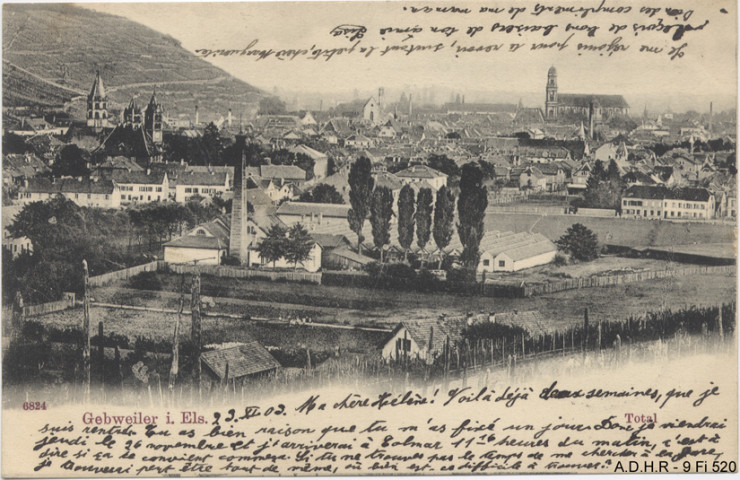 6824
Gebweiler i. Els. 23.XI.03. Ma chère Hélène! Voilà déjà deux semaines, que je
suis rentrée. Tu as bien raison que tu m'as fixé un jour. Donc je viendrai
Total
jeudi le 26 novembre et j'arriverai à Colmar heures du matin, c'est à
dire si ça te convient comme ça. Si tu ne trouves pas le temps de me chercher à la gare,
je trouverai peut être tout de même, où bien est-ce difficile à trouver?
Je me réjouis pour la revoir, surtout la petite, chère Marguerite
reçois de bons baisers de ton amie Lisa
bien des compliments de ma maman.
A.D.H.R - 9 Fi 520